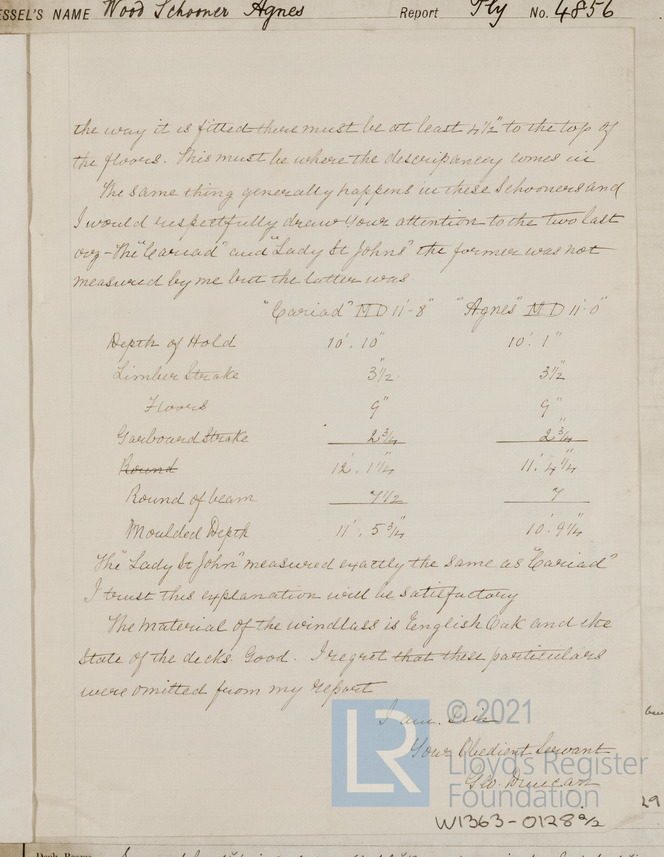 ESSEL'S NAME Wood Schooner Agnes Report Fly No. 4856
the way it is fitted there must be at least 4½" to the top of
the floors. This must be where the descripancy comes in
The same thing generally happens in these Schooners and
I would respectfully draw your attention to the two last
viz - The "Cariad" and "Lady St Johns" the former was not
measured by me but the latter was.
"Cariad" MD 11'-8" "Agnes" MD 11'-0"
Depth of Hold 10'. 10" 10'. 1"
Limber Strake 3½ 3½"
Floors 9" 9"
Garboard Strake 2¾ 2¾"
Round 12'. 1¼" 11'. 4¼"
Round of beam 7½ 7
Moulded Depth 11'. 5¾" 10'. 9¼"
The "Lady St John" measured exactly the same as "Cariad"
I trust this explanation will be satisfactory
The material of the windlass is English Oak and the
State of the decks Good. I regret that these particulars
were omitted from my report
I am. Sir
Your Obedient Servant
Geo. Duncan
LR © 2021
Lloyd's Register
Foundation
W1363-0128 2/2
29